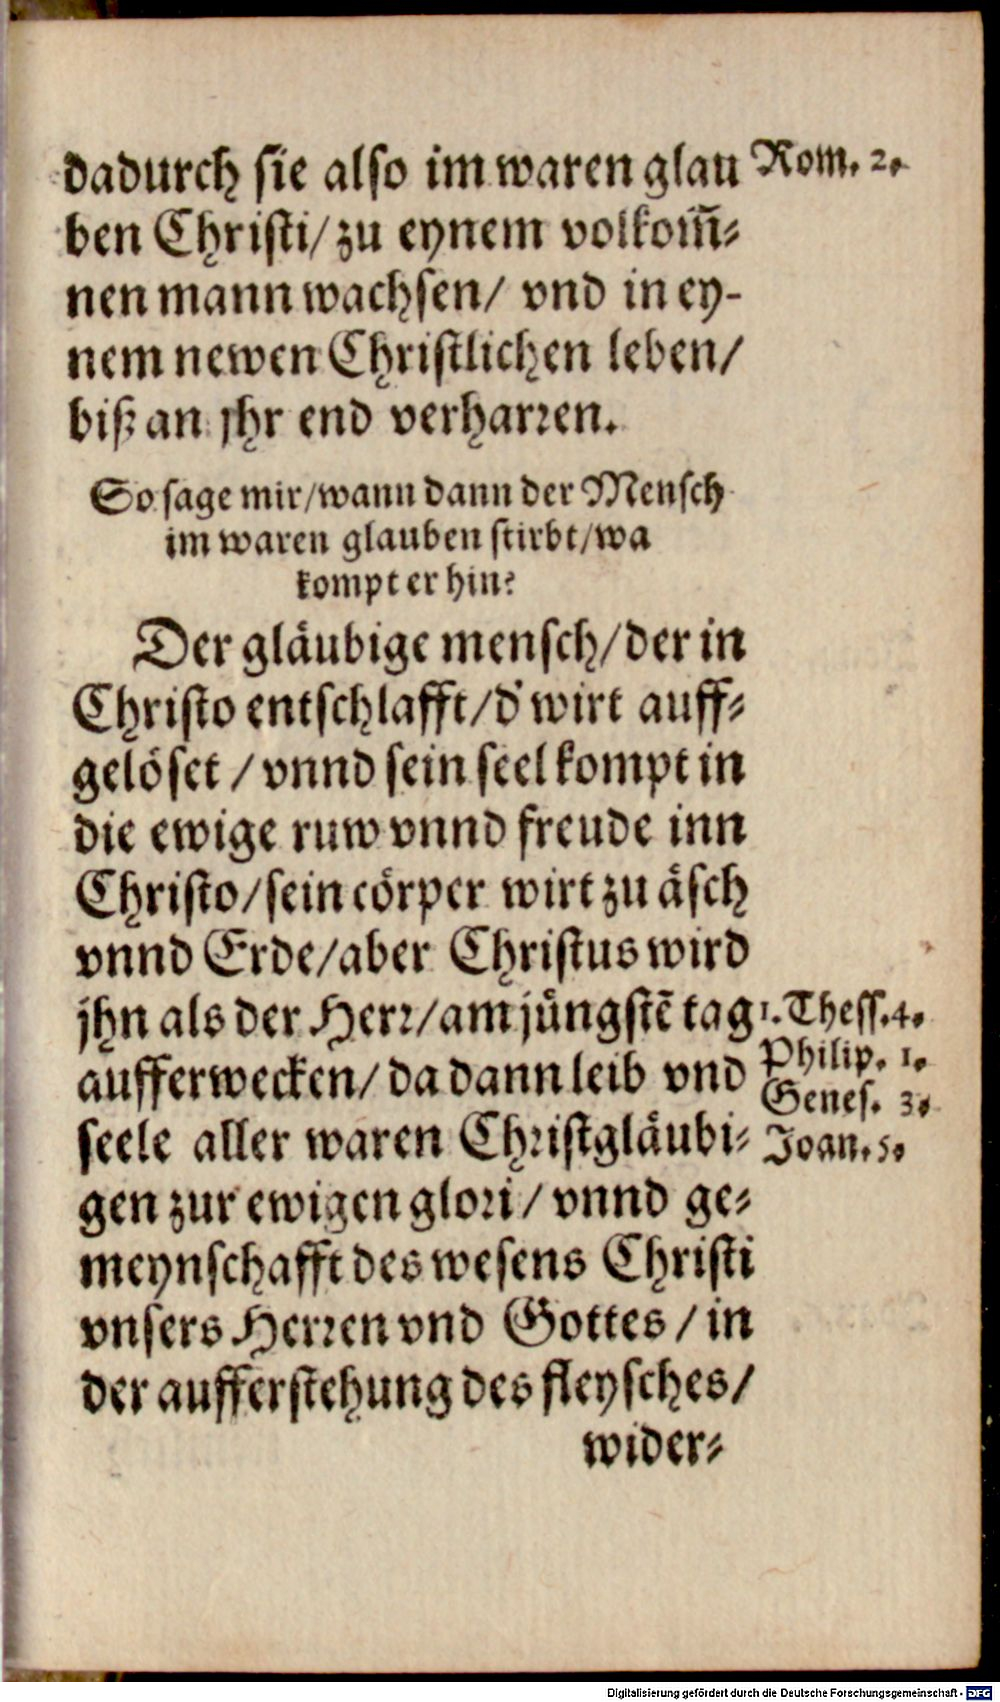 dadurch sie also im waren glau Rom. 2.
ben Christi/ zu eynem volkom̃-
nen mann wachsen/ vnd in ey-
nem newen Christlichen leben/
biß an jhr end verharren.
So sage mir/wann dann der Mensch
im waren glauben stirbt/wa
kompt er hin?
Der gläubige mensch/der in
Christo entschlafft/d' wirt auff-
gelöset / vnnd sein seel kompt in
die ewige ruw vnnd freude inn
Christo/sein cörper wirt zu äsch
vnnd Erde/aber Christus wird
jhn als der Herr/am jüngstē tag 1. Thess. 4.
aufferwecken/ da dann leib vnd Philip. 1.
Genes. 3.
seele aller waren Christgläubi- Joan. 5.
gen zur ewigen glori/ vnnd ge-
meynschafft des wesens Christi
vnsers Herren vnd Gottes / in
der aufferstehung des fleysches/
wider-
Digitalisierung gefördert durch die Deutsche Forschungsgemeinschaft - DFG